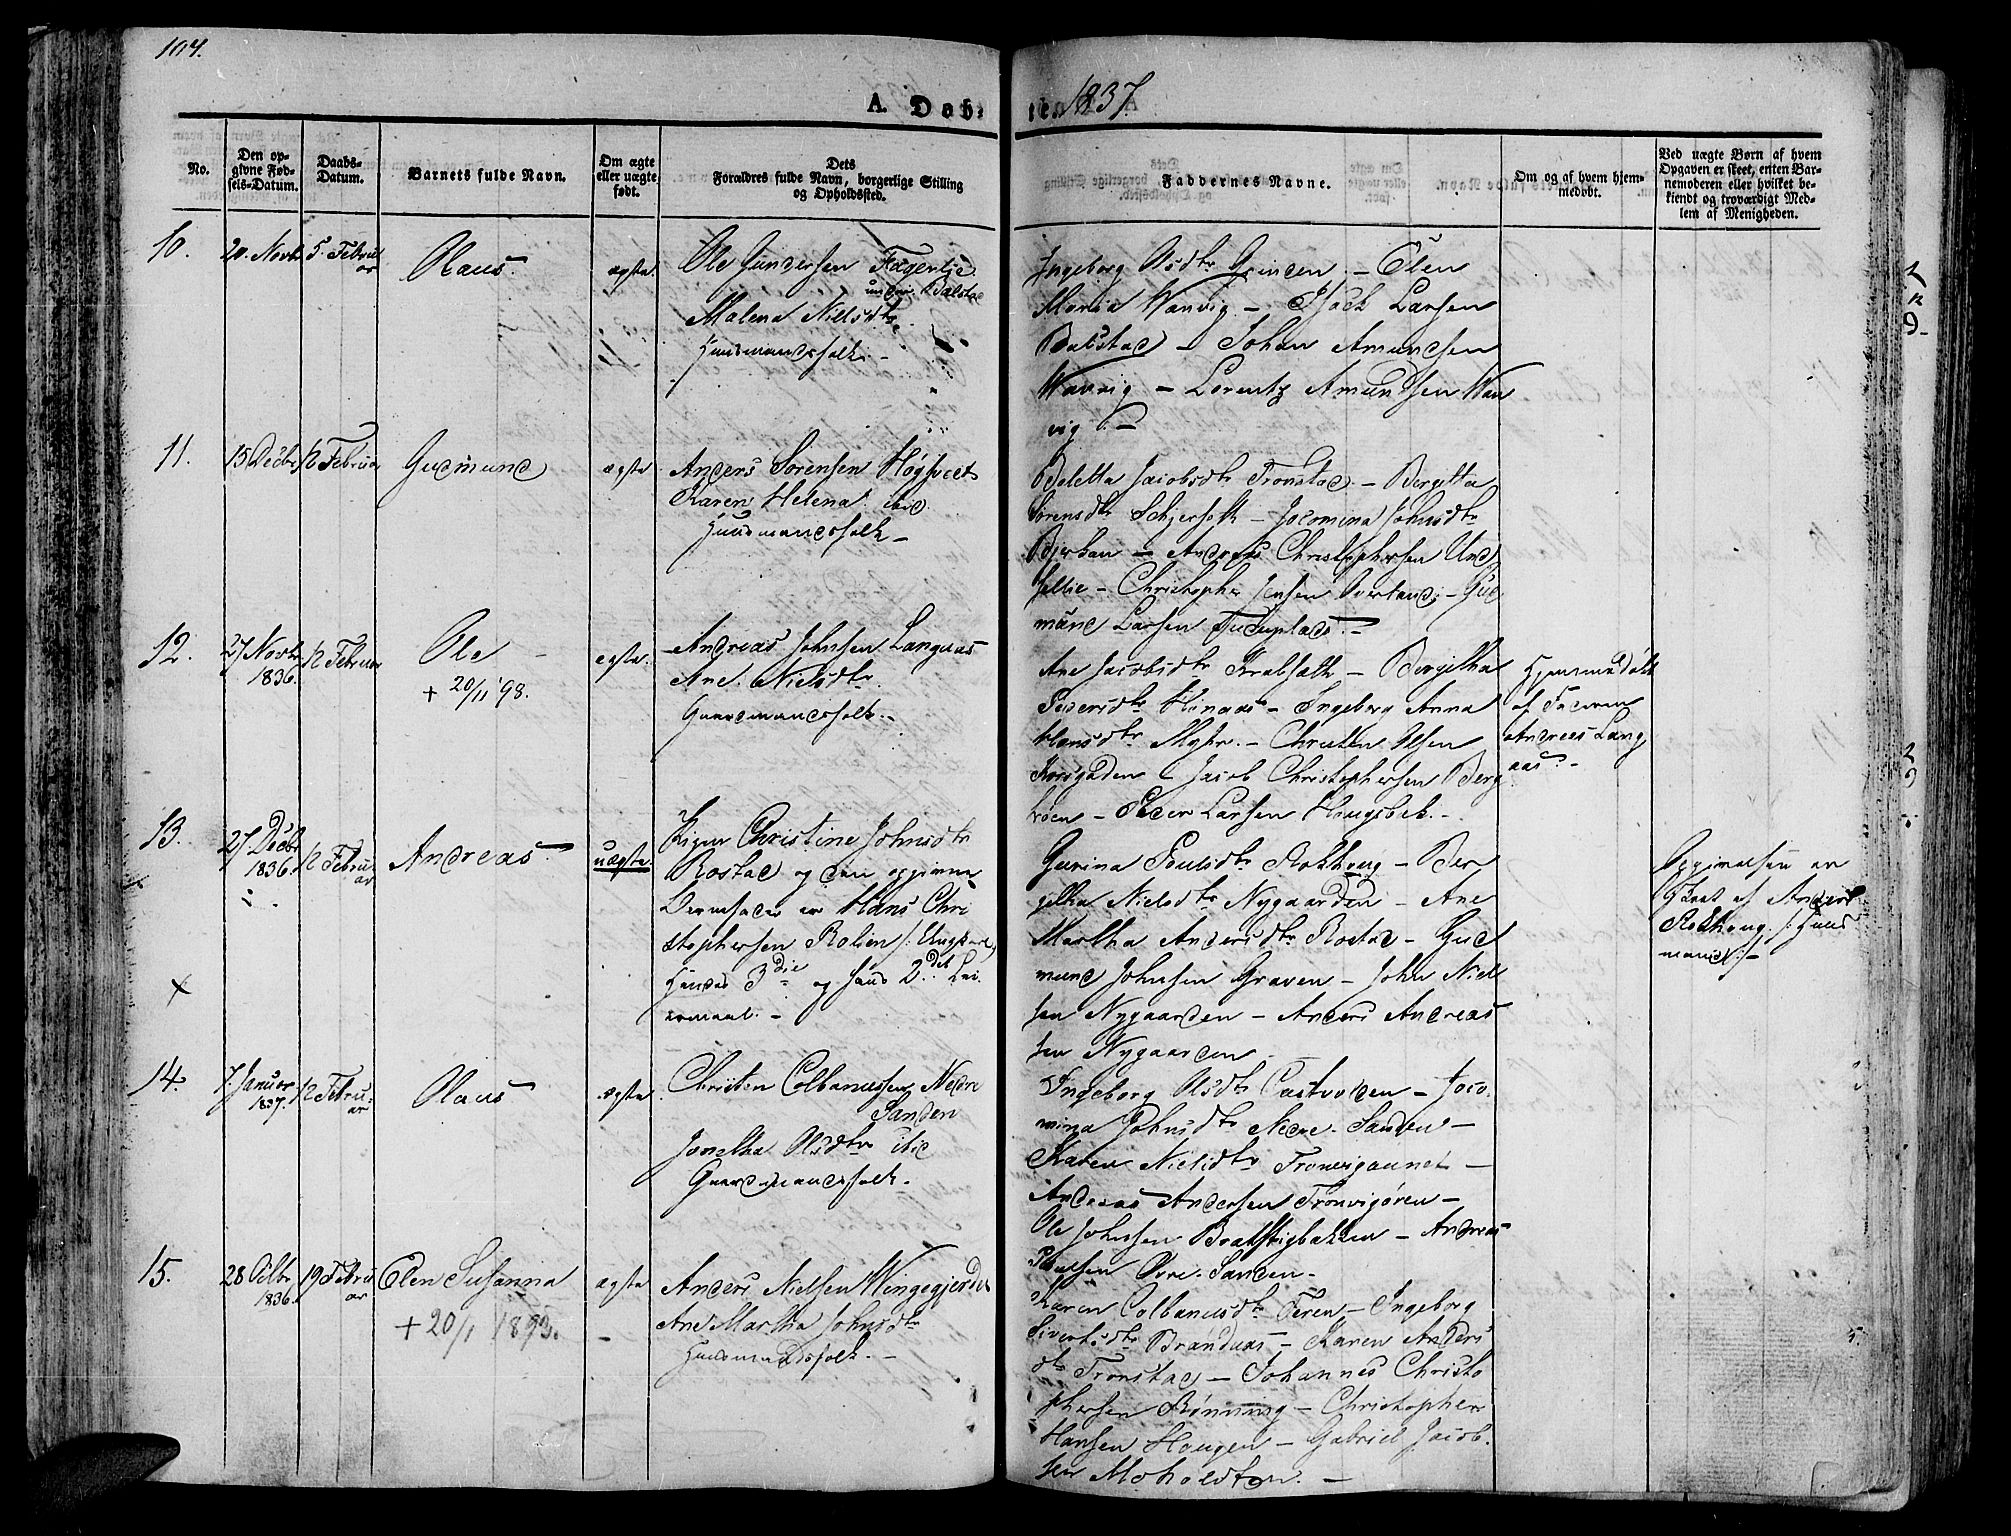 104.
A. Døb-
te. 1837.
No.
Den op-
givne Fød-
sels-Datum.
Daabs-
Datum.
Barnets fulde Navn.
Om ægte
eller uægte
født.
Dets
Forældres fulde Navn, borgerlige Stilling
og Opholdssted.
Faddernes Navne.
Om og af hvem hjem-
medøbt.
Ved uægte Børn af hvem
Opgaven er skeet, enten Bar-
nemoderen eller hvilket be-
kiendt og troværdigt Med-
lem af Menigheden.
10.
20. Novbr
5. Febru
ar
Olaus.
ægte.
Ole Gundersen Fagerlie
under Balstad
Malena Nielsdtr
Huusmandsfolk. –
Ingeborg Olsdtr Grinden. – Elen
Maria Wanvig – Isack Larsen
Balstad – Johan Amundsen
Wanvig – Lorentz Amundsen Wan
vig. –
11.
15 Decbr
12 Februar
Gudmund
ægte
Anders Sørensen Høgsveet
Karen Helena ibid
Huusmandsfolk –
Beletta Jacobsdtr Tronstad. – Bergitta
Sørensdtr Schjerfolk – Jocomina Johnsdtr
Bjerkan – Andreas Christophersen Und
sellie – Christopher Jensen Overland – Gud
mund Larsen
12.
27 Novbr
1836.
12 Februar
Ole –
+ 20/11 98.
ægte.
Andreas Johnsen Langaas
Ane Nielsdtr
Gaardmandsfolk. –
Ane Jacobsdtr – Bergitha
Pedersdtr – Ingeborg Anna
Hansdtr Myhr. – Christen Olsen
Korsgaden – Jacob Christophersen Berg
– Peder Larsen Haugsbek. –
Hjemmedøbt
af Faderen
Andreas Lang
aas. –
13.
27 Decbr
1836.
12 Febru
ar
Andreas.
uægte.
Pigen Christine Johnsdtr
Rostad og den opgivne
Barnefader er Hans Chri
stophersen Rolien /: Ungkarl,
Hendes 3die og hans 2det Lei
ermaal. –
Gurina Poulsdtr Rokhoug – Ber
githa Nielsdtr Nygaarden – Ane
Martha Andersdtr Rostad – Gud
mund Johnsen Graven – John Niel
sen Nygaarden – Anders Andreas
sen Nygaarden
Opgivelsen er
skeet af Anders
Rokhoug /: Huus
mand :/ –
×
14.
7. Januar
1837.
12 Febru-
ar
Olaus
ægte
Christen Colbanussen Nedre
Sanden
Jonetha Olsdtr ibid
Gaardmandsfolk.
Ingeborg Olsdtr – Joco
mina Johnsdtr Nedre Sanden –
Karen Nielsdtr –
Andreas Andersen Tronvigøren –
Ole Johnsen – Andreas
Poulsen Øvre Sanden –
15.
28 Octbr
1836.
19 Febru
ar
Elen Susanna
+ 20/1 1893.
ægte
–
Anders Nielsen Wingegjerdet
Ane Martha Johnsdtr
Huusmandsfolk. –
Karen Colbanusdtr Feren – Ingeborg
Sivertsdtr Brandaas – Karen Anders
dtr Tronstad – Johannes Christo
phersen Rønning – Christopher
Hansen Haugen – Gabriel Jacob
sen Moholdten. –